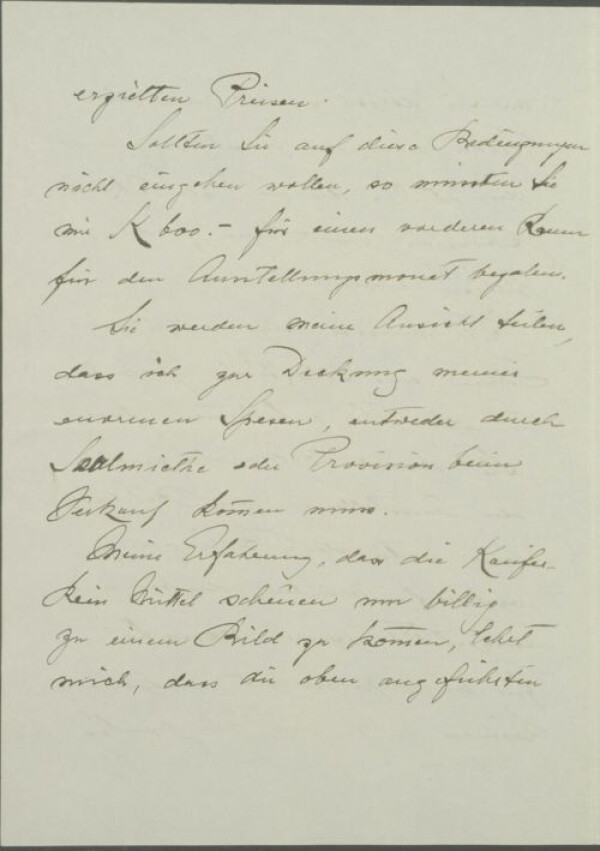 erzielten Preisen.
Sollten Sie auf diese Bedingungen
nicht eingehen wollen, so müssten Sie
mir K 600.- für einen vorderen Raum
für den Ausstellungsmonat bezahlen.
Sie werden meine Ansicht teilen,
dass ich zur Deckung meiner
enormen Spesen, entweder durch
Saalmiethe oder Provision beim
Verkauf kom̄en muss.
Meine Erfahrung, dass die Käufer
kein Mittel scheuen um billig
zu einem Bild zu kom̄en, lehrt
mich, dass die oben angeführten